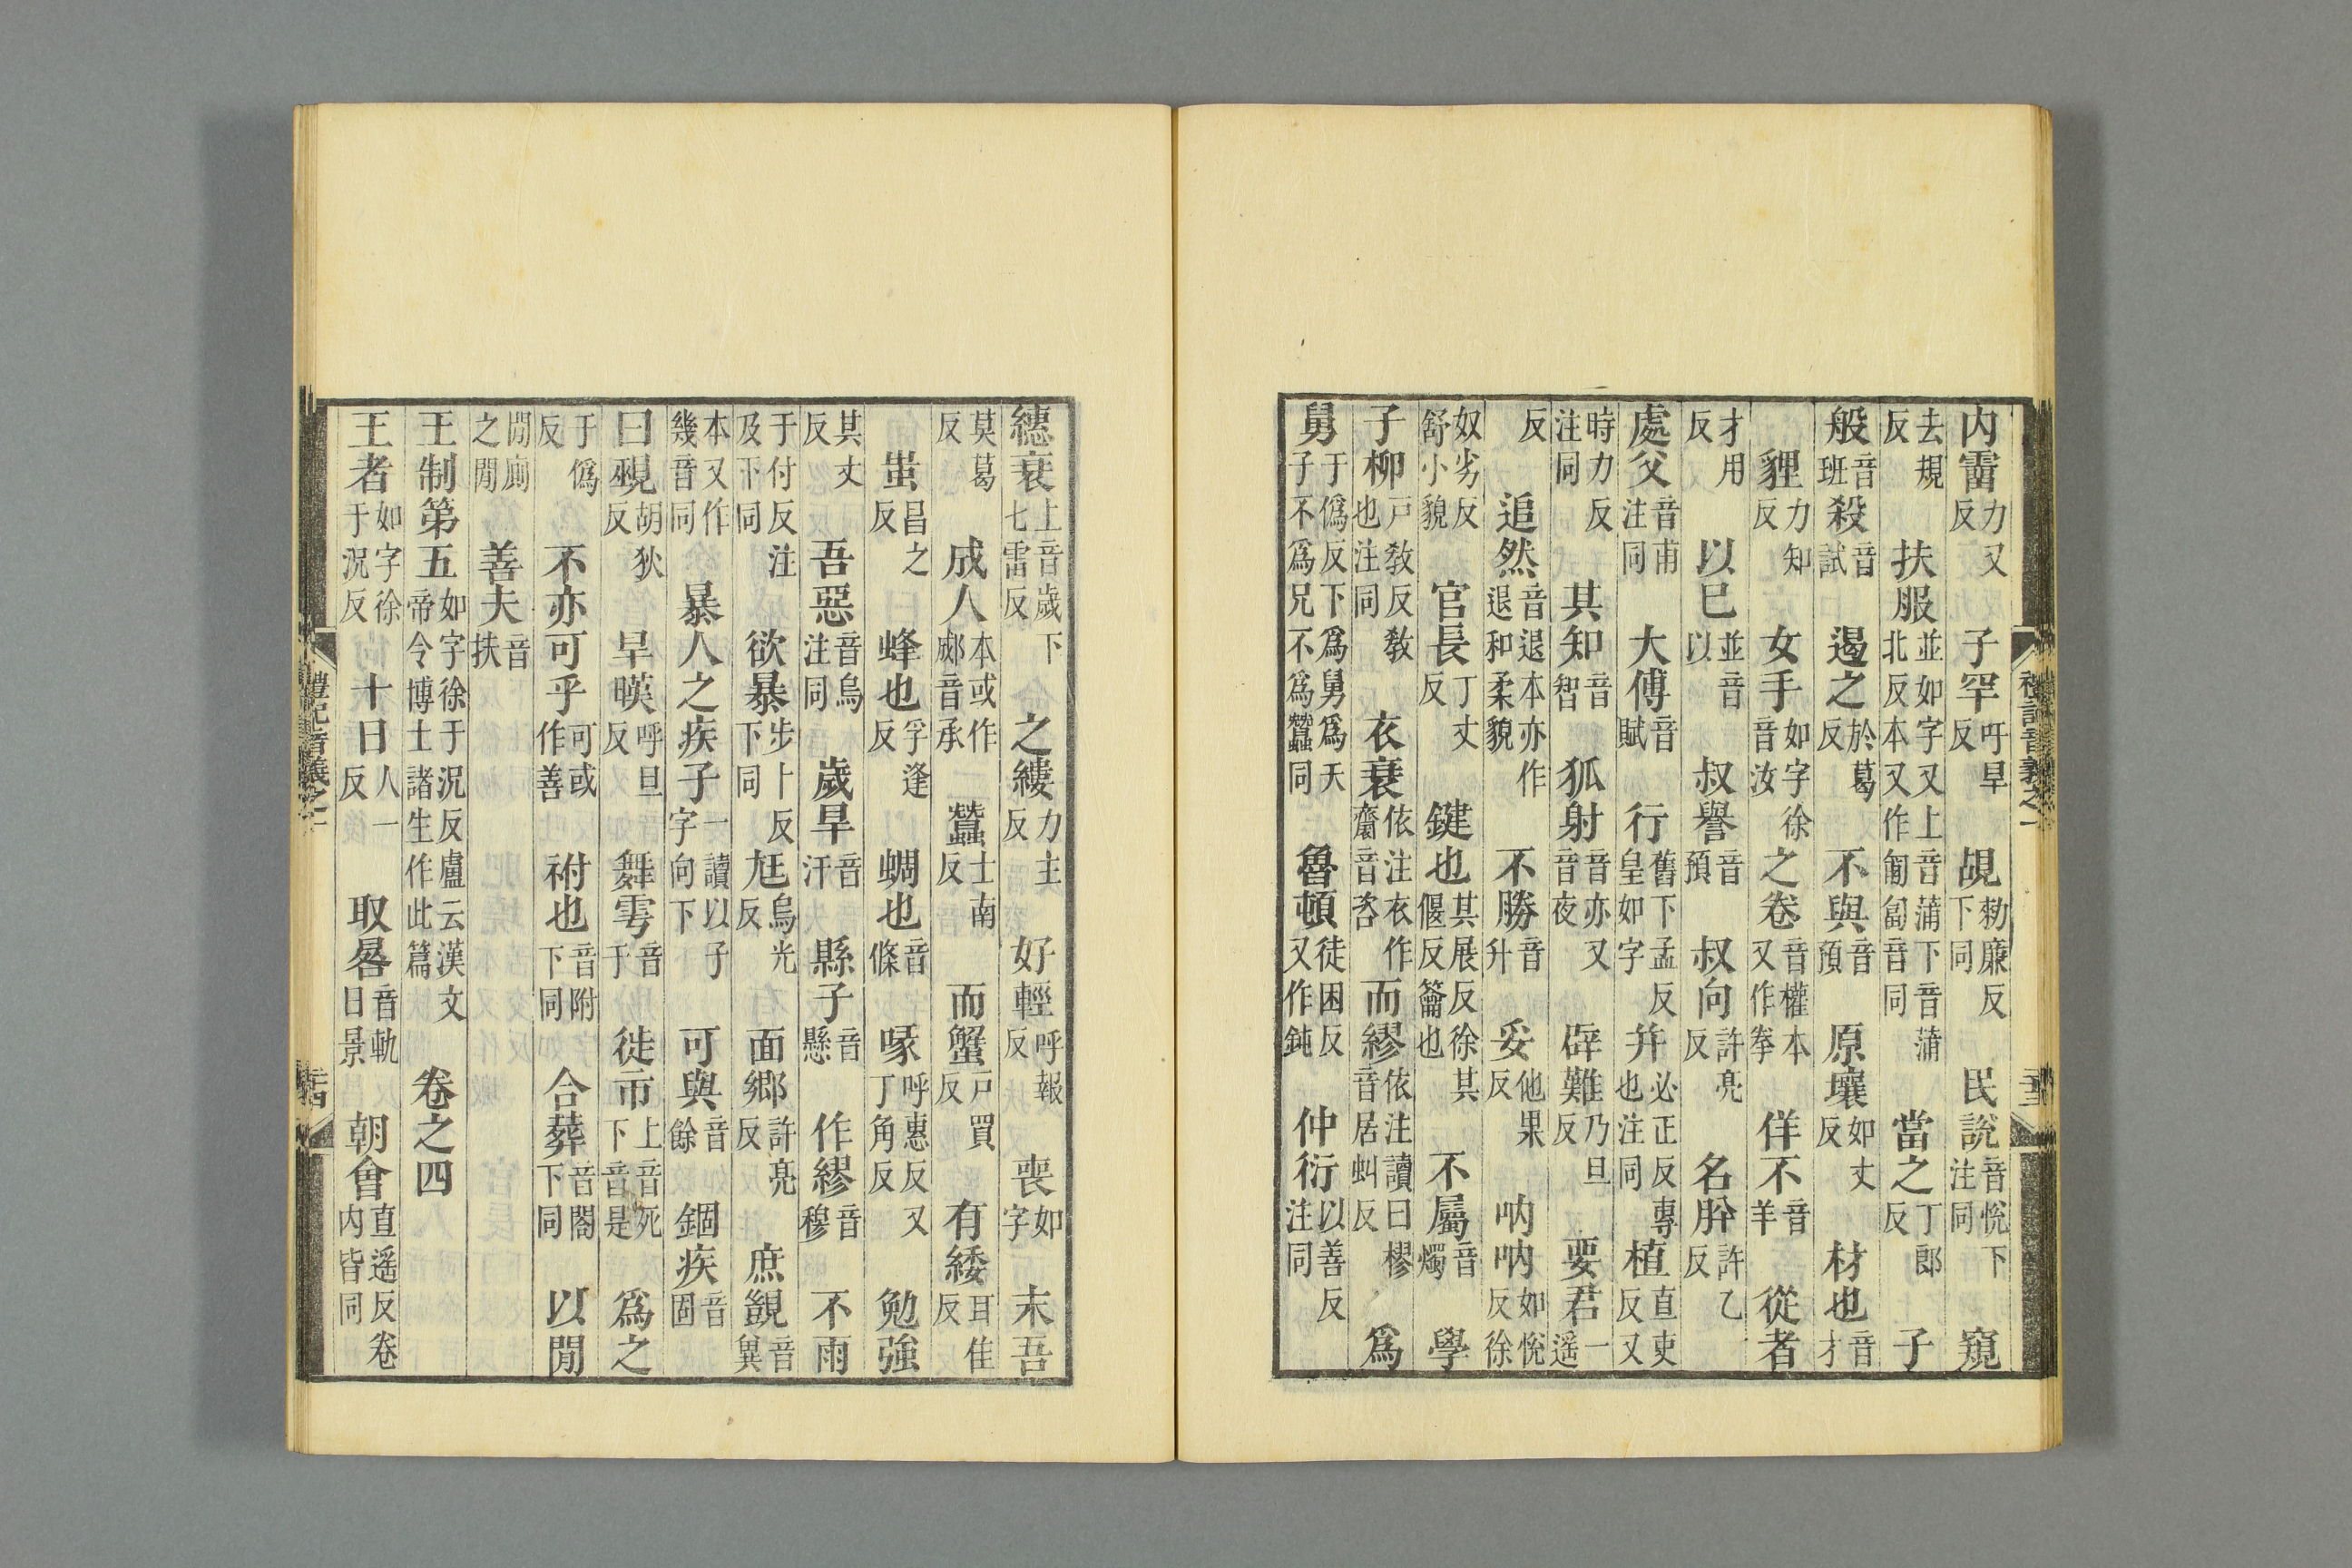 内霤力又反 子罕吁旱反 覘勑廉反下同 民說音悅下注同 窺
去規反 扶服並如字又上音蒲下音蒲北反本又作匍匐音同 當之丁郎反 子
般音班 殺音試 遏之於葛反 不與音預 原壤如丈反 材也音才
貍力知反 女手如字徐音汝 之卷音權本又作拳 佯不音羊 從者
才用反 以巳並音以 叔譽音預 叔向許亮反 名肸許乙反
處父音甫注同 大傅音賦 行舊下孟反皇如字 并必正反專也注同 植直吏反又
時力反注同 其知音智 狐射音亦又音夜 辟難乃旦反 要君一遥
反 追然音退本亦作退和柔貌 不勝音升 妥他果反 吶吶如悅反徐
奴劣反舒小貌 官長丁丈反 鍵也其展反徐其偃反籥也 不屬音燭 學
子柳戶敎反敎也注同 衣衰依注衣作齎音咨 而繆依注讀曰樛音居虯反 爲
舅于僞反下爲舅爲天子不爲兄不爲蠶同 魯頓徒困反又作鈍 仲衍以善反注同
禮記音義之一
繐衰上音歲下七雷反 之縷力主反 好輕呼報反 喪如字 末吾
莫葛反 成人本或作郕音承 蠶士南反 而蟹戶買反 有緌耳佳反
蚩昌之反 蜂也孚逢反 蜩也音條 喙呼惠反又丁角反 勉強
其丈反 吾惡音烏注同 歲旱音汗 縣子音懸 作繆音穆 不雨
于付反注及下同 欲暴步卜反下同 尫烏光反 面鄉許亮反 庶覬音兾
本又作幾音同 暴人之疾子一讀以子字向下 可與音餘 錮疾音固
曰覡胡狄反 旱暵呼旦反 舞雩音于 徙市上音死下音是 爲之
于僞反 不亦可乎可或作善 祔也音附下同 合葬音閤下同 以閒
閒厠之閒 善夫音扶
王制第五如字徐于況反盧云漢文帝令博士諸生作此篇 卷之四
王者如字徐于況反 十日人一反 取晷音軌日景 朝會直遥反卷内皆同
禮記音義之一